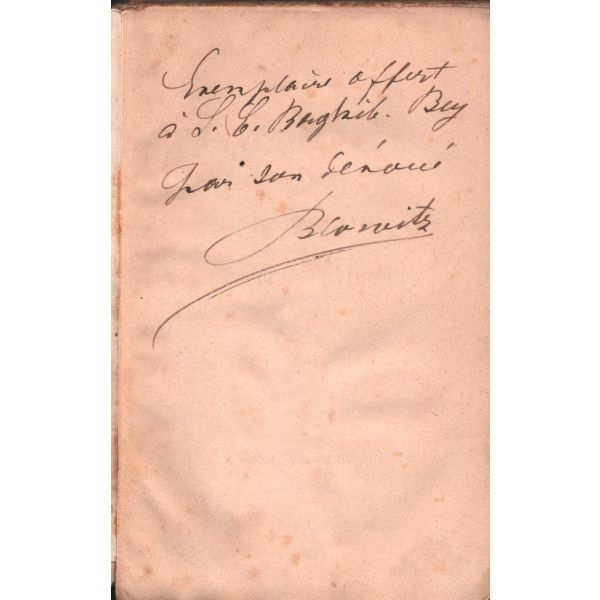 Exemplaire offert
à S. E. Raghib. Bey
par son dévoué
Blowitz